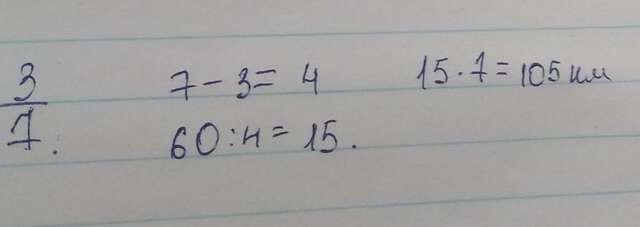 3/7.
7 - 3 = 4
60 : 4 = 15.
15 · 7 = 105 км